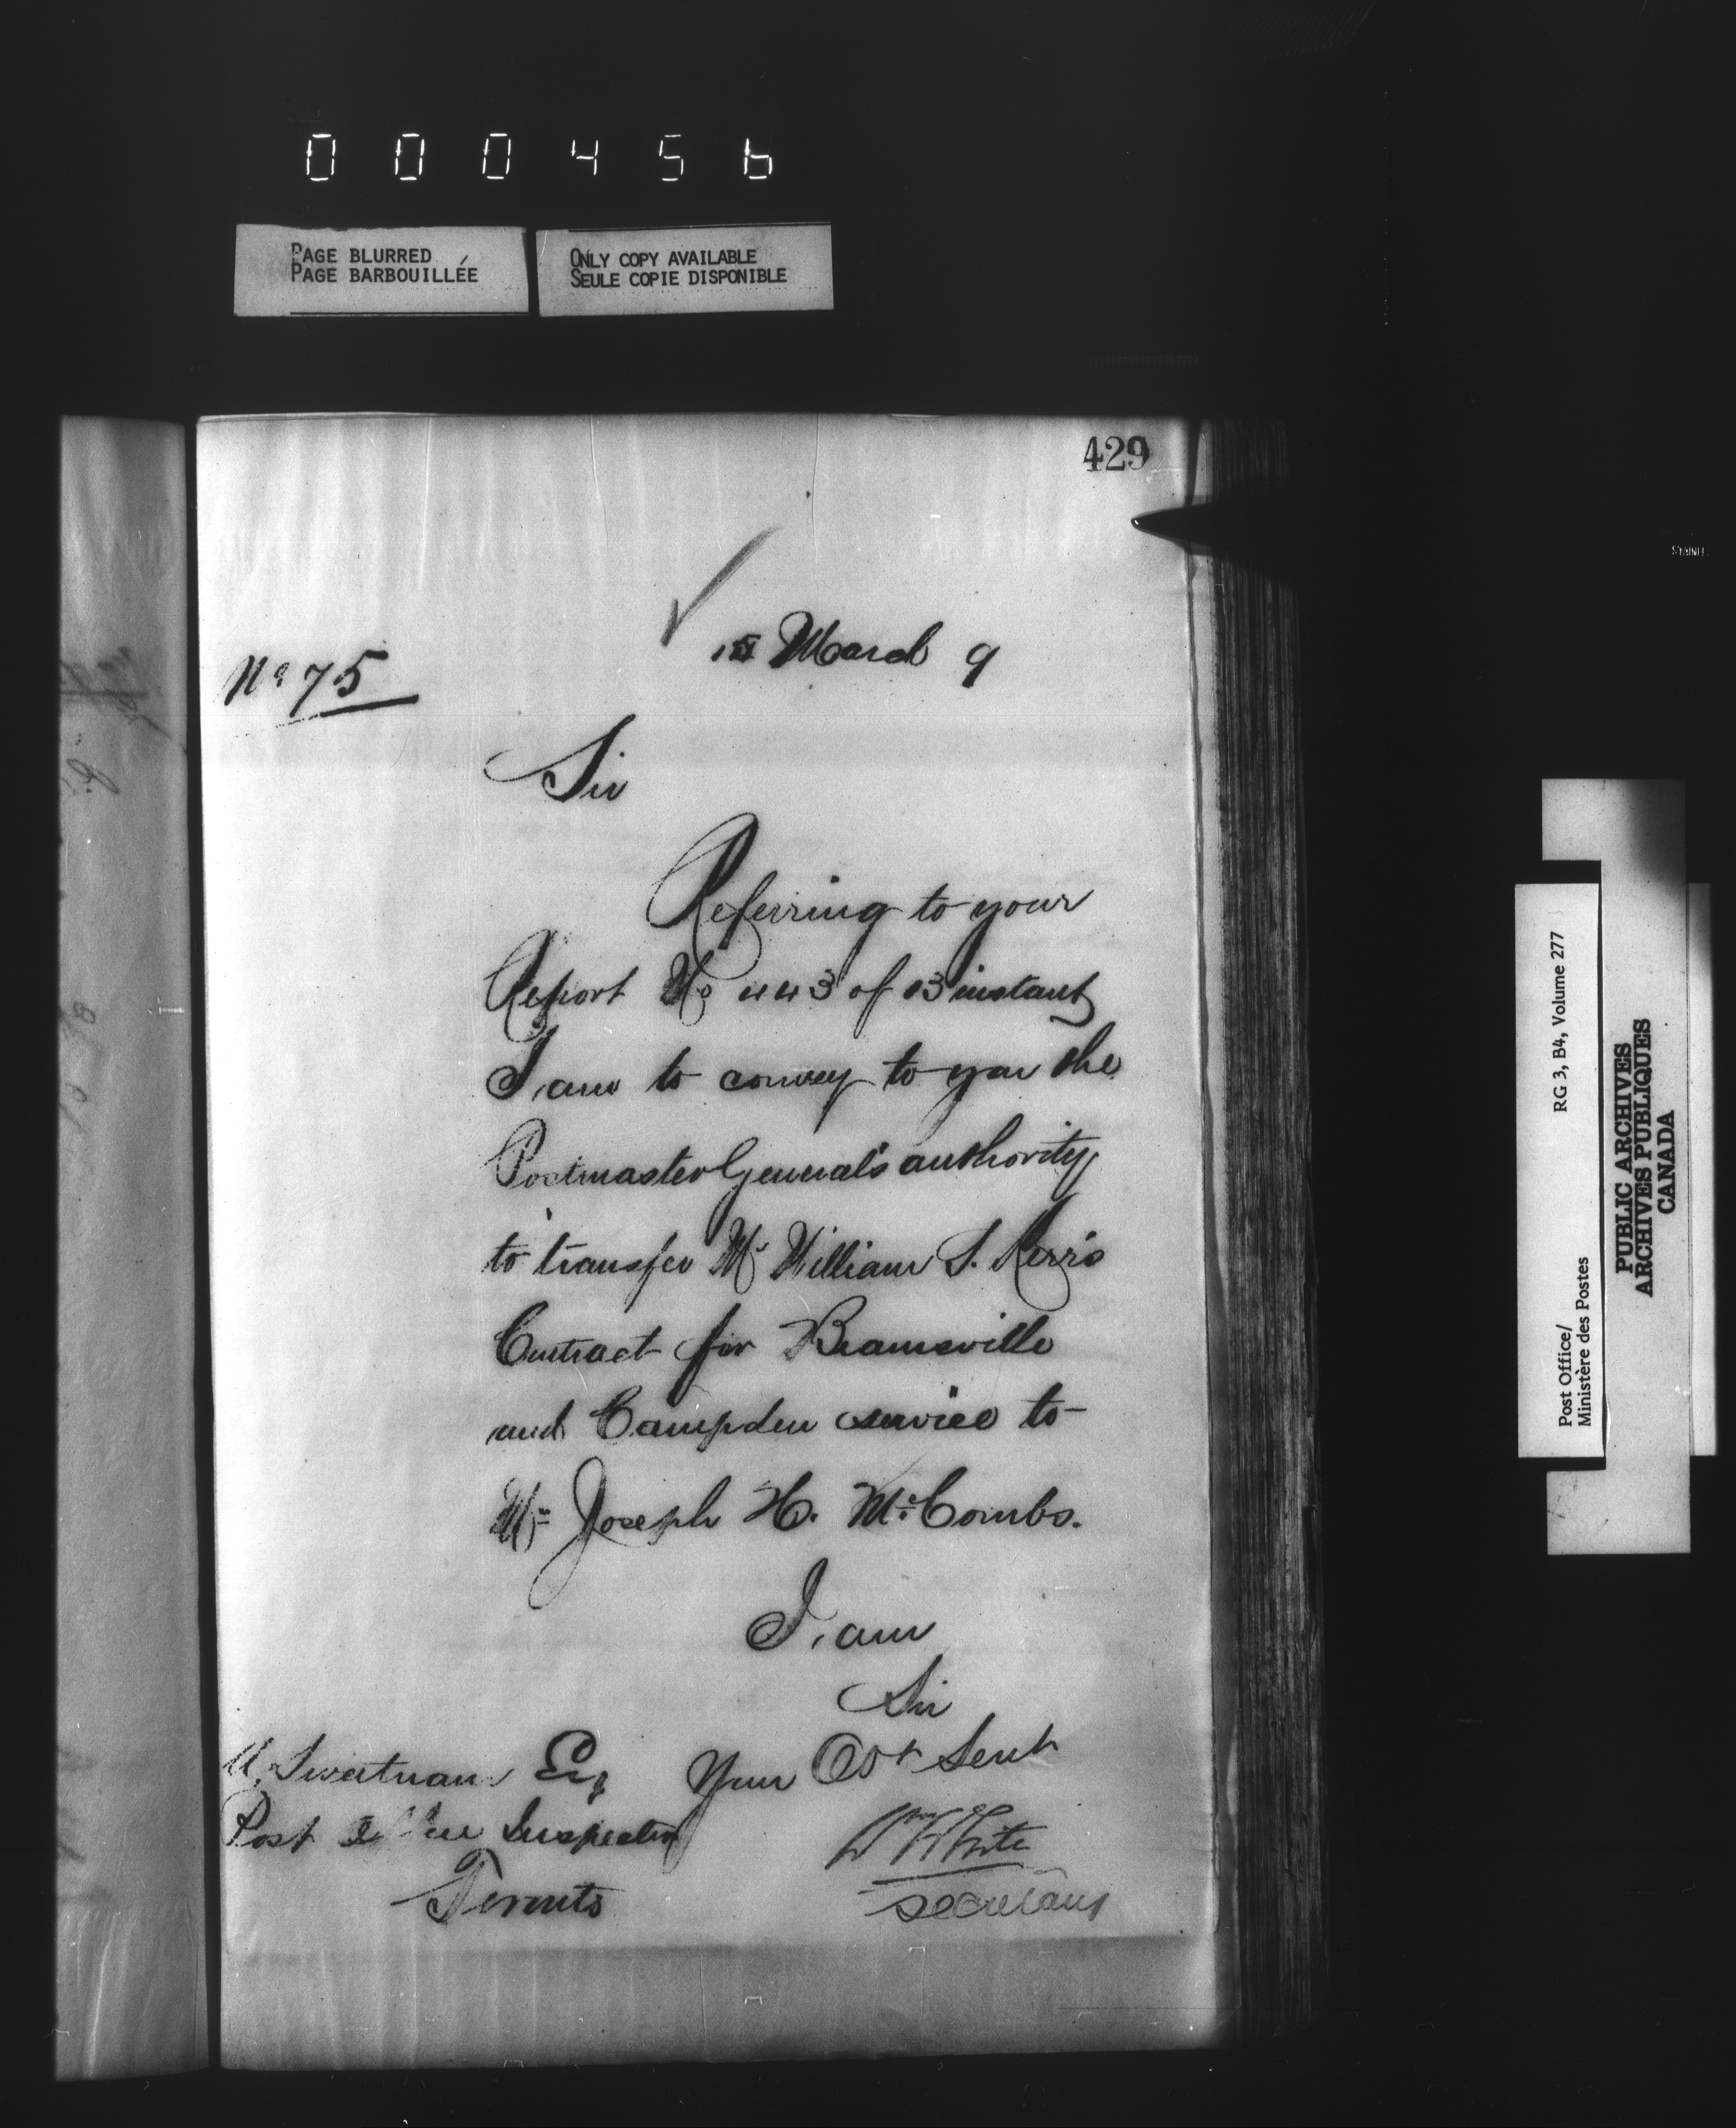 000456
PAGE BLURRED
PAGE BARBOUILLÉE
ONLY COPY AVAILABLE
SEULE COPIE DISPONIBLE
429
15 March 9
No 75
Sir
Referring to your
Report No 443 of 13 instant
I am to convey to you the
Postmaster General's authority
to transfer Mr William S. Kerr's
Contract for Beamsville
and Campden service to
Mr Joseph H. McCombs.
I am
Sir
Your Obt Servt
M. Sweetnam Esq
Post Office Inspector
Toronto
Wm White
Secretary
RG 3, B4, Volume 277
Post Office/
Ministère des Postes
PUBLIC ARCHIVES
ARCHIVES PUBLIQUES
CANADA